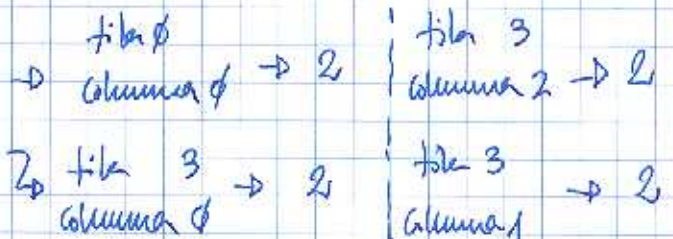 → fila ∅
columna ∅ → 2
fila 3
columna 2 → 2
fila 3
columna ∅ → 2
fila 3
columna 1 → 2